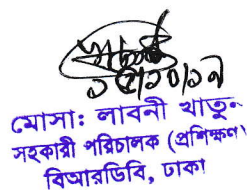 মোসা: লাবনী খাতুন
সহকারী পরিচালক (প্রশিক্ষণ)
বিআরডিবি, ঢাকা